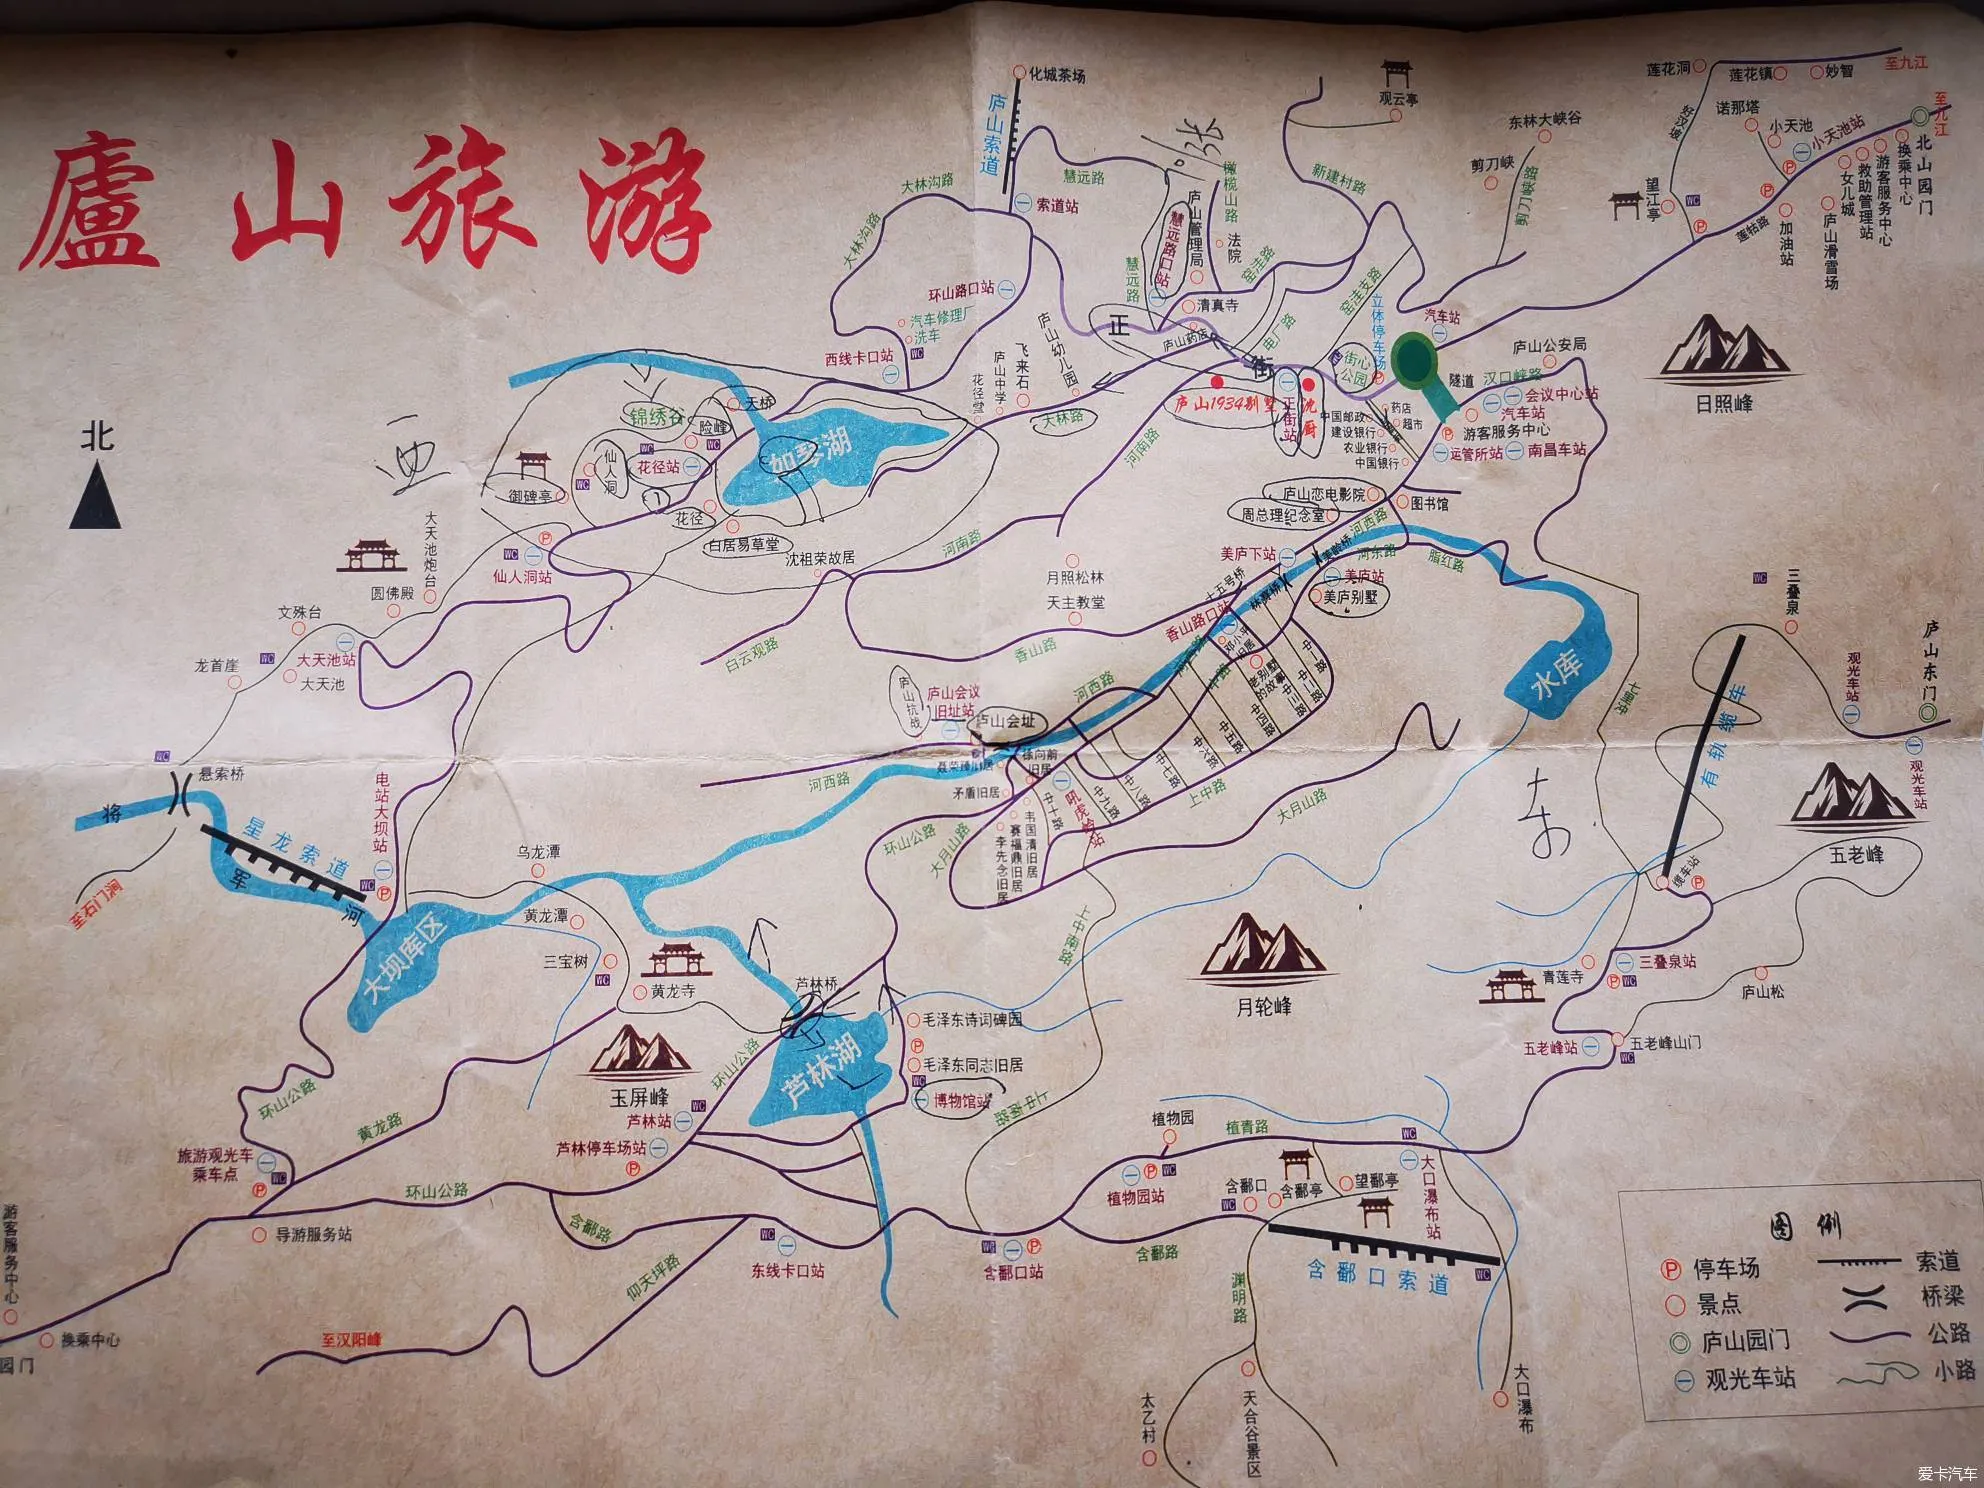 廬山旅游
北
西
东
化城茶场
庐山索道
索道站
大林沟路
大林沟路
慧远路
环山路口站
汽车修理厂
洗车
西线卡口站
庐山中学
花径雪
飞来石
庐山幼儿园
大林路
慧远路
慧远路口站
庐山管理局
橄榄山路
法院
窑洼路
清真寺
庐山药店
正街
电厂路
窑洼支路
立体停车场
街心公园
庐山1934别墅
正街站
沈厨
中国邮政
建设银行
农业银行
中国银行
药店
超市
观云亭
新建村路
东林大峡谷
剪刀峡
剪刀峡路
莲花洞
莲花镇
妙智
至九江
好汉坡
诺那塔
小天池
小天池站
望江亭
莲牯路
加油站
庐山滑雪场
女儿城
救助管理站
游客服务中心
换乘中心
北山园门
至九江
汽车站
隧道
汉口峡路
庐山公安局
会议中心站
汽车站
游客服务中心
运管所站
南昌车站
日照峰
锦绣谷
险峰
天桥
如琴湖
仙人洞
花径站
御碑亭
花径
白居易草堂
沈祖荣故居
仙人洞站
大天池炮台
圆佛殿
文殊台
大天池站
大天池
龙首崖
悬索桥
至石门涧
将军河
星龙索道
电站大坝站
大坝库区
乌龙潭
黄龙潭
三宝树
黄龙寺
玉屏峰
河南路
河南路
白云观路
月照松林
天主教堂
香山路
香山路口站
十五号桥
庐山恋电影院
周总理纪念室
图书馆
河西路
美庐下站
美龄桥
河东路
脂红路
美庐站
美庐别墅
林赛桥
邓小平旧居
老别墅的故事
中一路
中二路
中三路
中四路
中五路
中六路
中七路
中八路
中九路
中十路
上中路
河西路
庐山抗战
庐山会议旧址站
庐山会址
河西路
聂荣臻旧居
徐向前旧居
矛盾旧居
吼虎岭站
韦国清旧居
赛福鼎旧居
李先念旧居
环山公路
大月山路
大月山路
水库
七里冲
三叠泉
有轨缆车
观光车站
庐山东门
观光车站
五老峰
缆车站
三叠泉站
青莲寺
庐山松
五老峰站
五老峰山门
月轮峰
芦林桥
芦林湖
毛泽东诗词碑园
毛泽东同志旧居
博物馆站
环山公路
芦林站
芦林停车场站
上中南路
上中南路
环山公路
黄龙路
旅游观光车乘车点
导游服务站
环山公路
含鄱路
仰天坪路
东线卡口站
至汉阳峰
游客服务中心
换乘中心
园门
含鄱口站
植物园
植物园站
植青路
含鄱口
含鄱亭
望鄱亭
大口瀑布站
含鄱路
含鄱口索道
渊明路
太乙村
天合谷景区
大口瀑布
图例
停车场
索道
景点
桥梁
庐山园门
公路
观光车站
小路
爱卡汽车